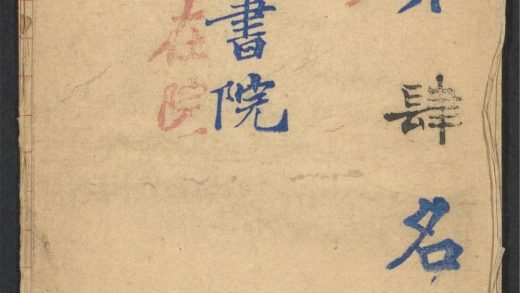 肆名
書院
在院